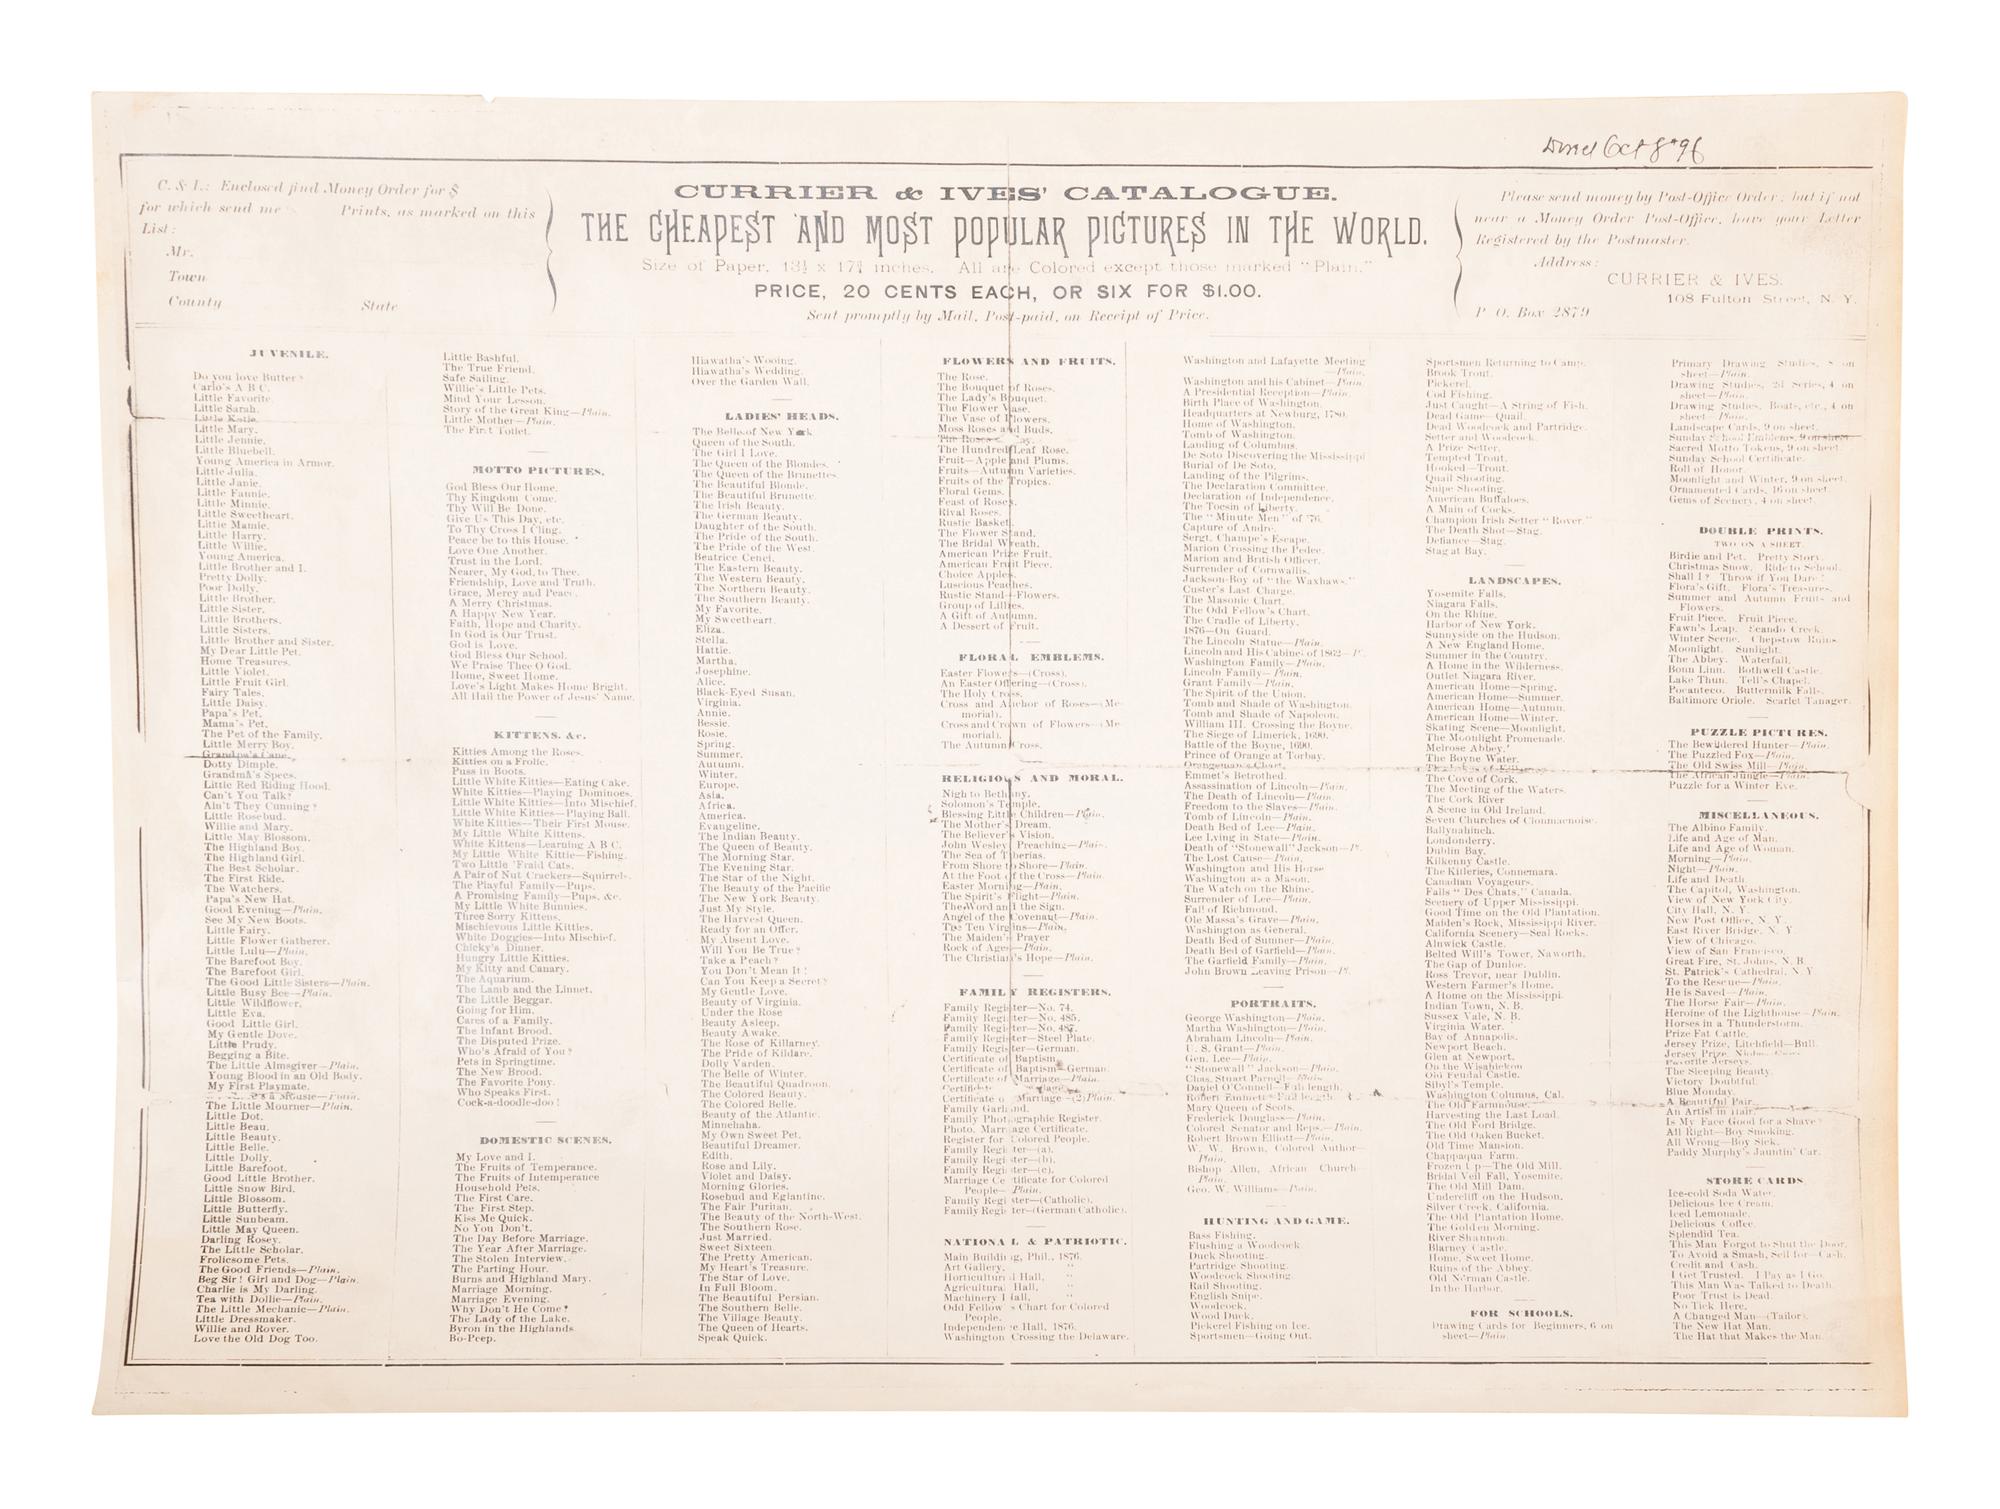 Oct 8th 96
C. & I.: Enclosed find Money Order for $
for which send me Prints, as marked on this
List:
Mr.
Town
County State
CURRIER & IVES' CATALOGUE.
THE CHEAPEST AND MOST POPULAR PICTURES IN THE WORLD.
Size of Paper, 13½ x 17¾ inches. All are Colored except those marked "Plain."
PRICE, 20 CENTS EACH, OR SIX FOR $1.00.
Sent promptly by Mail, Post-paid, on Receipt of Price.
Please send money by Post-Office Order; but if not
near a Money Order Post-Office, have your Letter
Registered by the Postmaster.
Address:
CURRIER & IVES.
108 Fulton Street, N. Y.
P. O. Box 2879
JUVENILE.
Do you love Butter?
Carlo's A B C.
Little Favorite.
Little Sarah.
Little Katie.
Little Mary.
Little Jennie.
Little Bluebell.
Young America in Armor.
Little Julia.
Little Janie.
Little Fannie.
Little Minnie.
Little Sweetheart.
Little Mamie.
Little Harry.
Little Willie.
Young America.
Little Brother and I.
Pretty Dolly.
Poor Dolly.
Little Brother.
Little Sister.
Little Brothers.
Little Sisters.
Little Brother and Sister.
My Dear Little Pet.
Home Treasures.
Little Violet.
Little Fruit Girl.
Fairy Tales.
Little Daisy.
Papa's Pet.
Mama's Pet.
The Pet of the Family.
Little Merry Boy.
Grandpa's Cane.
Dotty Dimple.
Grandma's Specs.
Little Red Riding Hood.
Can't You Talk?
Ain't They Cunning?
Little Rosebud.
Willie and Mary.
Little May Blossom.
The Highland Boy.
The Highland Girl.
The Best Scholar.
The First Ride.
The Watchers.
Papa's New Hat.
Good Evening—Plain.
See My New Boots.
Little Fairy.
Little Flower Gatherer.
Little Lulu—Plain.
The Barefoot Boy.
The Barefoot Girl.
The Good Little Sisters—Plain.
Little Busy Bee—Plain.
Little Wildflower.
Little Eva.
Good Little Girl.
My Gentle Dove.
Little Prudy.
Begging a Bite.
The Little Almsgiver—Plain.
Young Blood in an Old Body.
My First Playmate.
a Mousie—Plain.
The Little Mourner—Plain.
Little Dot.
Little Beau.
Little Beauty.
Little Belle.
Little Dolly.
Little Barefoot.
Good Little Brother.
Little Snow Bird.
Little Blossom.
Little Butterfly.
Little Sunbeam.
Little May Queen.
Darling Rosey.
The Little Scholar.
Frolicsome Pets.
The Good Friends—Plain.
Beg Sir! Girl and Dog—Plain.
Charlie is My Darling.
Tea with Dollie—Plain.
The Little Mechanic—Plain.
Little Dressmaker.
Willie and Rover.
Love the Old Dog Too.
Little Bashful.
The True Friend.
Safe Sailing.
Willie's Little Pets.
Mind Your Lesson.
Story of the Great King—Plain.
Little Mother—Plain.
The First Toilet.
MOTTO PICTURES.
God Bless Our Home.
Thy Kingdom Come.
Thy Will Be Done.
Give Us This Day, etc.
To Thy Cross I Cling.
Peace be to this House.
Love One Another.
Trust in the Lord.
Nearer, My God, to Thee.
Friendship, Love and Truth.
Grace, Mercy and Peace.
A Merry Christmas.
A Happy New Year.
Faith, Hope and Charity.
In God is Our Trust.
God is Love.
God Bless Our School.
We Praise Thee O God.
Home, Sweet Home.
Love's Light Makes Home Bright.
All Hail the Power of Jesus' Name.
KITTENS, &c.
Kitties Among the Roses.
Kitties on a Frolic.
Puss in Boots.
Little White Kitties—Eating Cake.
White Kitties—Playing Dominoes.
Little White Kitties—Into Mischief.
Little White Kitties—Playing Ball.
White Kitties—Their First Mouse.
My Little White Kittens.
White Kittens—Learning A B C.
My Little White Kittie—Fishing.
Two Little 'Fraid Cats.
A Pair of Nut Crackers—Squirrels.
The Playful Family—Pups.
A Promising Family—Pups, &c.
My Little White Bunnies.
Three Sorry Kittens.
Mischievous Little Kitties.
White Doggies—Into Mischief.
Chicky's Dinner.
Hungry Little Kitties.
My Kitty and Canary.
The Aquarium.
The Lamb and the Linnet.
The Little Beggar.
Going for Him.
Cares of a Family.
The Infant Brood.
The Disputed Prize.
Who's Afraid of You?
Pets in Springtime.
The New Brood.
The Favorite Pony.
Who Speaks First.
Cock-a-doodle-doo!
DOMESTIC SCENES.
My Love and I.
The Fruits of Temperance.
The Fruits of Intemperance
Household Pets.
The First Care.
The First Step.
Kiss Me Quick.
No You Don't.
The Day Before Marriage.
The Year After Marriage.
The Stolen Interview.
The Parting Hour.
Burns and Highland Mary.
Marriage Morning.
Marriage Evening.
Why Don't He Come?
The Lady of the Lake.
Byron in the Highlands
Bo-Peep.
Hiawatha's Wooing.
Hiawatha's Wedding.
Over the Garden Wall.
LADIES' HEADS.
The Belle of New York
Queen of the South.
The Girl I Love.
The Queen of the Blondes.
The Queen of the Brunettes.
The Beautiful Blonde.
The Beautiful Brunette.
The Irish Beauty.
The German Beauty.
Daughter of the South.
The Pride of the South.
The Pride of the West.
Beatrice Cenci.
The Eastern Beauty.
The Western Beauty.
The Northern Beauty.
The Southern Beauty.
My Favorite.
My Sweetheart.
Eliza.
Stella.
Hattie.
Martha.
Josephine.
Alice.
Black-Eyed Susan.
Virginia.
Annie.
Bessie.
Rosie.
Spring.
Summer.
Autumn.
Winter.
Europe.
Asia.
Africa.
America.
Evangeline.
The Indian Beauty.
The Queen of Beauty.
The Morning Star.
The Evening Star.
The Star of the Night.
The Beauty of the Pacific
The New York Beauty.
Just My Style.
The Harvest Queen.
Ready for an Offer.
My Absent Love.
Will You Be True?
Take a Peach?
You Don't Mean It!
Can You Keep a Secret?
My Gentle Love.
Beauty of Virginia.
Under the Rose
Beauty Asleep.
Beauty Awake.
The Rose of Killarney.
The Pride of Kildare.
Dolly Varden.
The Belle of Winter.
The Beautiful Quadroon.
The Colored Beauty.
The Colored Belle.
Beauty of the Atlantic.
Minnehaha.
My Own Sweet Pet.
Beautiful Dreamer.
Edith.
Rose and Lily.
Violet and Daisy.
Morning Glories.
Rosebud and Eglantine.
The Fair Puritan.
The Beauty of the North-West.
The Southern Rose.
Just Married.
Sweet Sixteen.
The Pretty American.
My Heart's Treasure.
The Star of Love.
In Full Bloom.
The Beautiful Persian.
The Southern Belle.
The Village Beauty.
The Queen of Hearts.
Speak Quick.
FLOWERS AND FRUITS.
The Rose.
The Bouquet of Roses.
The Lady's Bouquet.
The Flower Vase.
The Vase of Flowers.
Moss Roses and Buds.
The Roses
The Hundred Leaf Rose.
Fruit—Apple and Plums.
Fruits—Autumn Varieties.
Fruits of the Tropics.
Floral Gems.
Feast of Roses.
Rival Roses.
Rustic Basket.
The Flower Stand.
The Bridal Wreath.
American Prize Fruit.
American Fruit Piece.
Choice Apples.
Luscious Peaches.
Rustic Stand—Flowers.
Group of Lillies.
A Gift of Autumn.
A Dessert of Fruit.
FLORAL EMBLEMS.
Easter Flowers—(Cross).
An Easter Offering—(Cross).
The Holy Cross.
Cross and Anchor of Roses—(Me-
morial).
Cross and Crown of Flowers—(Me-
morial).
The Autumn Cross.
RELIGIOUS AND MORAL.
Nigh to Bethany.
Solomon's Temple.
Blessing Little Children—Plain.
The Mother's Dream.
The Believer's Vision.
John Wesley Preaching—Plain.
The Sea of Tiberias.
From Shore to Shore—Plain.
At the Foot of the Cross—Plain.
Easter Morning—Plain.
The Spirit's Flight—Plain.
The Word and the Sign.
Angel of the Covenant—Plain.
The Ten Virgins—Plain.
The Maiden's Prayer
Rock of Ages—Plain.
The Christian's Hope—Plain.
FAMILY REGISTERS.
Family Register—No. 74.
Family Register—No. 485.
Family Register—No. 487.
Family Register—Steel Plate.
Family Register—German.
Certificate of Baptism.
Certificate of Baptism—German.
Certificate of Marriage—Plain.
Certificate
Certificate of Marriage—(2) Plain.
Family Garland.
Family Photographic Register.
Photo. Marriage Certificate.
Register for Colored People.
Family Register—(a).
Family Register—(b).
Family Register—(c).
Marriage Certificate for Colored
People—Plain.
Family Register—(Catholic).
Family Register—(German Catholic).
NATIONAL & PATRIOTIC.
Main Building, Phil., 1876.
Art Gallery, "
Horticultural Hall, "
Agricultural Hall,
Machinery Hall, "
Odd Fellow's Chart for Colored
People.
Independence Hall, 1876.
Washington Crossing the Delaware.
Washington and Lafayette Meeting
—Plain.
Washington and his Cabinet—Plain.
A Presidential Reception—Plain.
Birth Place of Washington.
Headquarters at Newburg, 1780.
Home of Washington.
Tomb of Washington.
Landing of Columbus.
De Soto Discovering the Mississippi
Burial of De Soto.
Landing of the Pilgrims.
The Declaration Committee.
Declaration of Independence.
The Tocsin of Liberty.
The "Minute Men" of '76.
Capture of Andre.
Sergt. Champe's Escape.
Marion Crossing the Pedee.
Marion and British Officer.
Surrender of Cornwallis.
Jackson-Boy of "the Waxhaws."
Custer's Last Charge.
The Masonic Chart.
The Odd Fellow's Chart.
The Cradle of Liberty.
1876—On Guard.
The Lincoln Statue—Plain.
Lincoln and His Cabinet of 1862—P.
Washington Family—Plain.
Lincoln Family—Plain.
Grant Family—Plain.
The Spirit of the Union.
Tomb and Shade of Washington.
Tomb and Shade of Napoleon.
William III. Crossing the Boyne.
The Siege of Limerick, 1690.
Battle of the Boyne, 1690.
Prince of Orange at Torbay.
Orangemans Chart.
Emmet's Betrothed.
Assassination of Lincoln—Plain.
The Death of Lincoln—Plain.
Freedom to the Slaves—Plain.
Tomb of Lincoln—Plain.
Death Bed of Lee—Plain.
Lee Lying in State—Plain.
Death of "Stonewall" Jackson—P.
The Lost Cause—Plain.
Washington and His Horse
Washington as a Mason.
The Watch on the Rhine.
Surrender of Lee—Plain.
Fall of Richmond.
Ole Massa's Grave—Plain.
Washington as General.
Death Bed of Sumner—Plain.
Death Bed of Garfield—Plain.
The Garfield Family—Plain.
John Brown Leaving Prison—Pl.
PORTRAITS.
George Washington—Plain.
Martha Washington—Plain.
Abraham Lincoln—Plain.
U. S. Grant—Plain.
Gen. Lee—Plain.
"Stonewall" Jackson—Plain.
Chas. Stuart Parnell—Plain.
Daniel O'Connell—Full length.
Robert Emmett—Full length.
Mary Queen of Scots.
Frederick Douglass—Plain.
Colored Senator and Reps.—Plain.
Robert Brown Elliott—Plain.
W. W. Brown, Colored Author—
Plain.
Bishop Allen, African Church—
Plain.
Geo. W. Williams—Plain.
HUNTING AND GAME.
Bass Fishing.
Flushing a Woodcock.
Duck Shooting.
Partridge Shooting.
Woodcock Shooting.
Rail Shooting.
English Snipe.
Woodcock.
Wood Duck.
Pickerel Fishing on Ice.
Sportsmen—Going Out.
Sportsmen Returning to Camp.
Brook Trout.
Pickerel.
Cod Fishing.
Just Caught—A String of Fish.
Dead Game—Quail.
Dead Woodcock and Partridge.
Setter and Woodcock.
A Prize Setter.
Tempted Trout.
Hooked—Trout.
Quail Shooting.
Snipe Shooting.
American Buffaloes.
A Main of Cocks.
Champion Irish Setter "Rover."
The Death Shot—Stag.
Defiance—Stag.
Stag at Bay.
LANDSCAPES.
Yosemite Falls.
Niagara Falls.
On the Rhine.
Harbor of New York.
Sunnyside on the Hudson.
A New England Home.
Summer in the Country.
A Home in the Wilderness.
Outlet Niagara River.
American Home—Spring.
American Home—Summer.
American Home—Autumn.
American Home—Winter.
Skating Scene—Moonlight.
The Moonlight Promenade.
Melrose Abbey.
The Boyne Water.
The Lakes of Killarney.
The Cove of Cork.
The Meeting of the Waters.
The Cork River
A Scene in Old Ireland.
Seven Churches of Clonmacnoise.
Ballynahinch.
Londonderry.
Dublin Bay.
Kilkenny Castle.
The Killeries, Connemara.
Canadian Voyageurs.
Falls "Des Chats," Canada.
Scenery of Upper Mississippi.
Good Time on the Old Plantation.
Maiden's Rock, Mississippi River.
California Scenery—Seal Rocks.
Alnwick Castle.
Belted Will's Tower, Naworth.
The Gap of Dunloe.
Ross Trevor, near Dublin.
Western Farmer's Home.
A Home on the Mississippi.
Indian Town, N. B.
Sussex Vale, N. B.
Virginia Water.
Bay of Annapolis.
Newport Beach.
Glen at Newport.
On the Wissahickon
Old Feudal Castle.
Sibyl's Temple.
Washington Columns, Cal.
The Old Farmhouse.
Harvesting the Last Load.
The Old Ford Bridge.
The Old Oaken Bucket.
Old Time Mansion.
Chappaqua Farm.
Frozen Up—The Old Mill.
Bridal Veil Fall, Yosemite.
The Old Mill Dam.
Undercliff on the Hudson.
Silver Creek, California.
The Old Plantation Home.
The Golden Morning.
River Shannon.
Blarney Castle.
Home, Sweet Home.
Ruins of the Abbey.
Old Norman Castle.
In the Harbor.
FOR SCHOOLS.
Drawing Cards for Beginners, 6 on
sheet—Plain.
Primary Drawing Studies, 8 on
sheet—Plain.
Drawing Studies, 2d Series, 4 on
sheet—Plain.
Drawing Studies, Boats, etc., 4 on
sheet—Plain.
Landscape Cards, 9 on sheet.
Sunday School Emblems, 9 on sheet.
Sacred Motto Tokens, 9 on sheet.
Sunday School Certificate.
Roll of Honor.
Moonlight and Winter, 9 on sheet.
Ornamented Cards, 16 on sheet.
Gems of Scenery, 4 on sheet.
DOUBLE PRINTS.
TWO ON A SHEET.
Birdie and Pet. Pretty Story.
Christmas Snow. Ride to School.
Shall I? Throw if You Dare!
Flora's Gift. Flora's Treasures.
Summer and Autumn Fruits and
Flowers.
Fruit Piece. Fruit Piece.
Fawn's Leap. Scando Creek.
Winter Scene. Chepstow Ruins.
Moonlight. Sunlight.
The Abbey. Waterfall.
Bonn Linn. Bothwell Castle.
Lake Thun. Tell's Chapel.
Pocanteco. Buttermilk Falls.
Baltimore Oriole. Scarlet Tanager.
PUZZLE PICTURES.
The Bewildered Hunter—Plain.
The Puzzled Fox—Plain.
The Old Swiss Mill—Plain.
The African Jungle—Plain.
Puzzle for a Winter Eve.
MISCELLANEOUS.
The Albino Family.
Life and Age of Man.
Life and Age of Woman.
Morning—Plain.
Night—Plain.
Life and Death.
The Capitol, Washington.
View of New York City.
City Hall, N. Y.
New Post Office, N. Y.
East River Bridge, N. Y.
View of Chicago.
View of San Francisco.
Great Fire, St. Johns, N. B.
St. Patrick's Cathedral, N. Y.
To the Rescue—Plain.
He is Saved—Plain.
The Horse Fair—Plain.
Heroine of the Lighthouse—Plain.
Horses in a Thunderstorm.
Prize Fat Cattle.
Jersey Prize, Litchfield—Bull.
Jersey Prize,
Favorite Jerseys.
The Sleeping Beauty.
Victory Doubtful.
Blue Monday.
A Beautiful Pair.
An Artist in Hair.
Is My Face Good for a Shave?
All Right—Boy Smoking.
All Wrong—Boy Sick.
Paddy Murphy's Jauntin' Car.
STORE CARDS
Ice-cold Soda Water.
Delicious Ice Cream.
Iced Lemonade.
Delicious Coffee.
Splendid Tea.
This Man Forgot to Shut the Door.
To Avoid a Smash, Sell for—Cash.
Credit and Cash.
I Get Trusted. I Pay as I Go.
This Man Was Talked to Death.
Poor Trust is Dead.
No Tick Here.
A Changed Man—(Tailor).
The New Hat Man.
The Hat that Makes the Man.